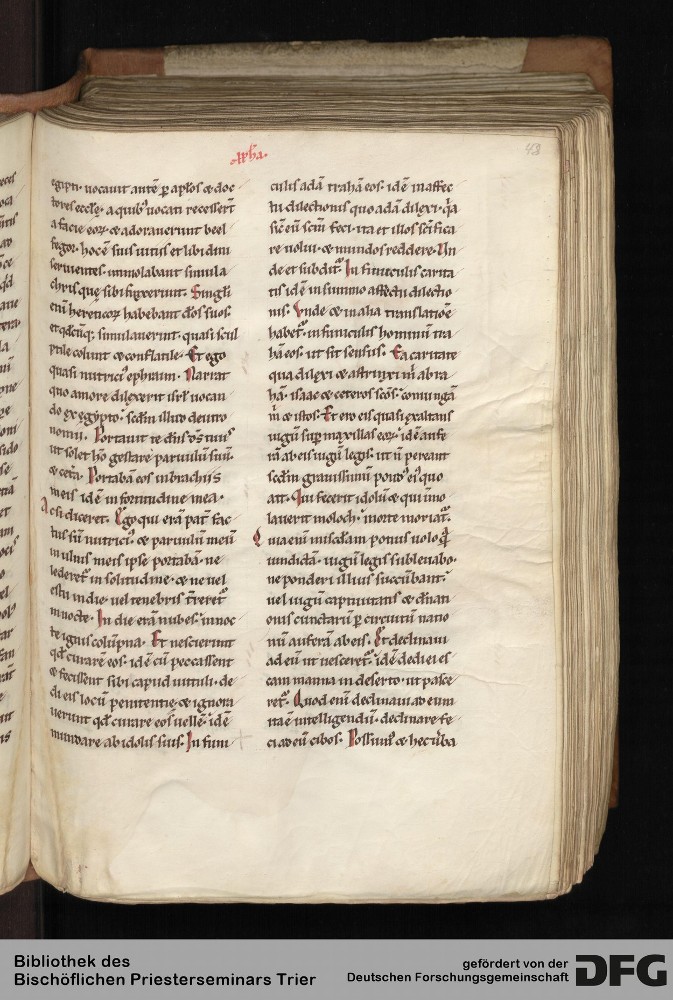 .xpha.
48
egipti. uocauit autē ꝑ apłos & doc
tores ecclę. a quib; uocati recesserī
a facie eoꝝ & adorauerunt beel
fegor. hoc ē suis uitiis et libidini
seruientes. immolabant simula
chris quę sibi finxerunt. Singuli
enī hereticoꝝ habebant dōs suos.
et qđcūq; simulauerunt. quasi scul
ptile colunt & conflatile. Et ego
quasi nutrici9 ephraim. Narrat
quo amore dilexerit isrł uocan
do ex egypto. scđm illud deutro
nomii. Portauit te dn̄s đs tuus
ut solet hō gestare paruulū suū.
& cetā. Portabā eos in brachiis
meis idē in fortitudine mea.
Ac si diceret. Ego qui erā pat̄ fac
tus sū nutrici9. & paruulū meū
in ulnis meis ipse portabā. ne
lederet̄ in solitudine. & ne uel
estu in die. uel tenebris tr̄reret̄
in nocte. In die erā nubes. in noc
te ignis colūpna. Et nescierunt
qđ curarē eos. idē cū peccassent
& fecissent sibi capud uituli. de
di eis locū penitentię & ignora
uerunt qđ curare eos uellē. idē
mundare ab idolis suis. In funi
culis adā trahā eos. idē in affec
tu dilectionis quo adā dilexi. q̄a
sic eū scīm feci. ita et illos scīfica
re uolui. & mundos reddere. Un
de et subdit̄. In funiculis carita
tis idē in summo affectu dilectio
nis. Vnde & in alia translatiōe
habet̄. in funiculis hominum tra
hā eos. ut sit sensus. Ea caritate
qua dilexi & astrinxi m̄ abra
hā. isaac & ceteros scōs. coniungā
m̄ & istos. Et ero eis quasi exaltans
iugū suꝑ maxillas eoꝝ. idē aufe
rā ab eis iugū legis. ut n̄ pereant
scđm grauissimū pond9 ei9 quo
ait. Qui fecerit idolū & qui imo
lauerit moloch. morte moriat̄.
Quia enī misc̄diam potius uolo q̄
uindictā. iugū legis subleuabo.
ne ponderi illius succūbant.
uel iugū captiuitatis & dn̄ati
onis cunctarū ꝑ circuitū natio
nū auferā ab eis. Et declinaui
ad eū ut uesceret̄. idē dedi ei es
cam manna in deserto. ut pasce
ret̄. Quod enī declinaui ad eum
ita ē intelligendū. declinare fe
ci ad eū cibos. Possum9 & hec ūba
Bibliothek des
Bischöflichen Priesterseminars Trier
gefördert von der
Deutschen Forschungsgemeinschaft
DFG